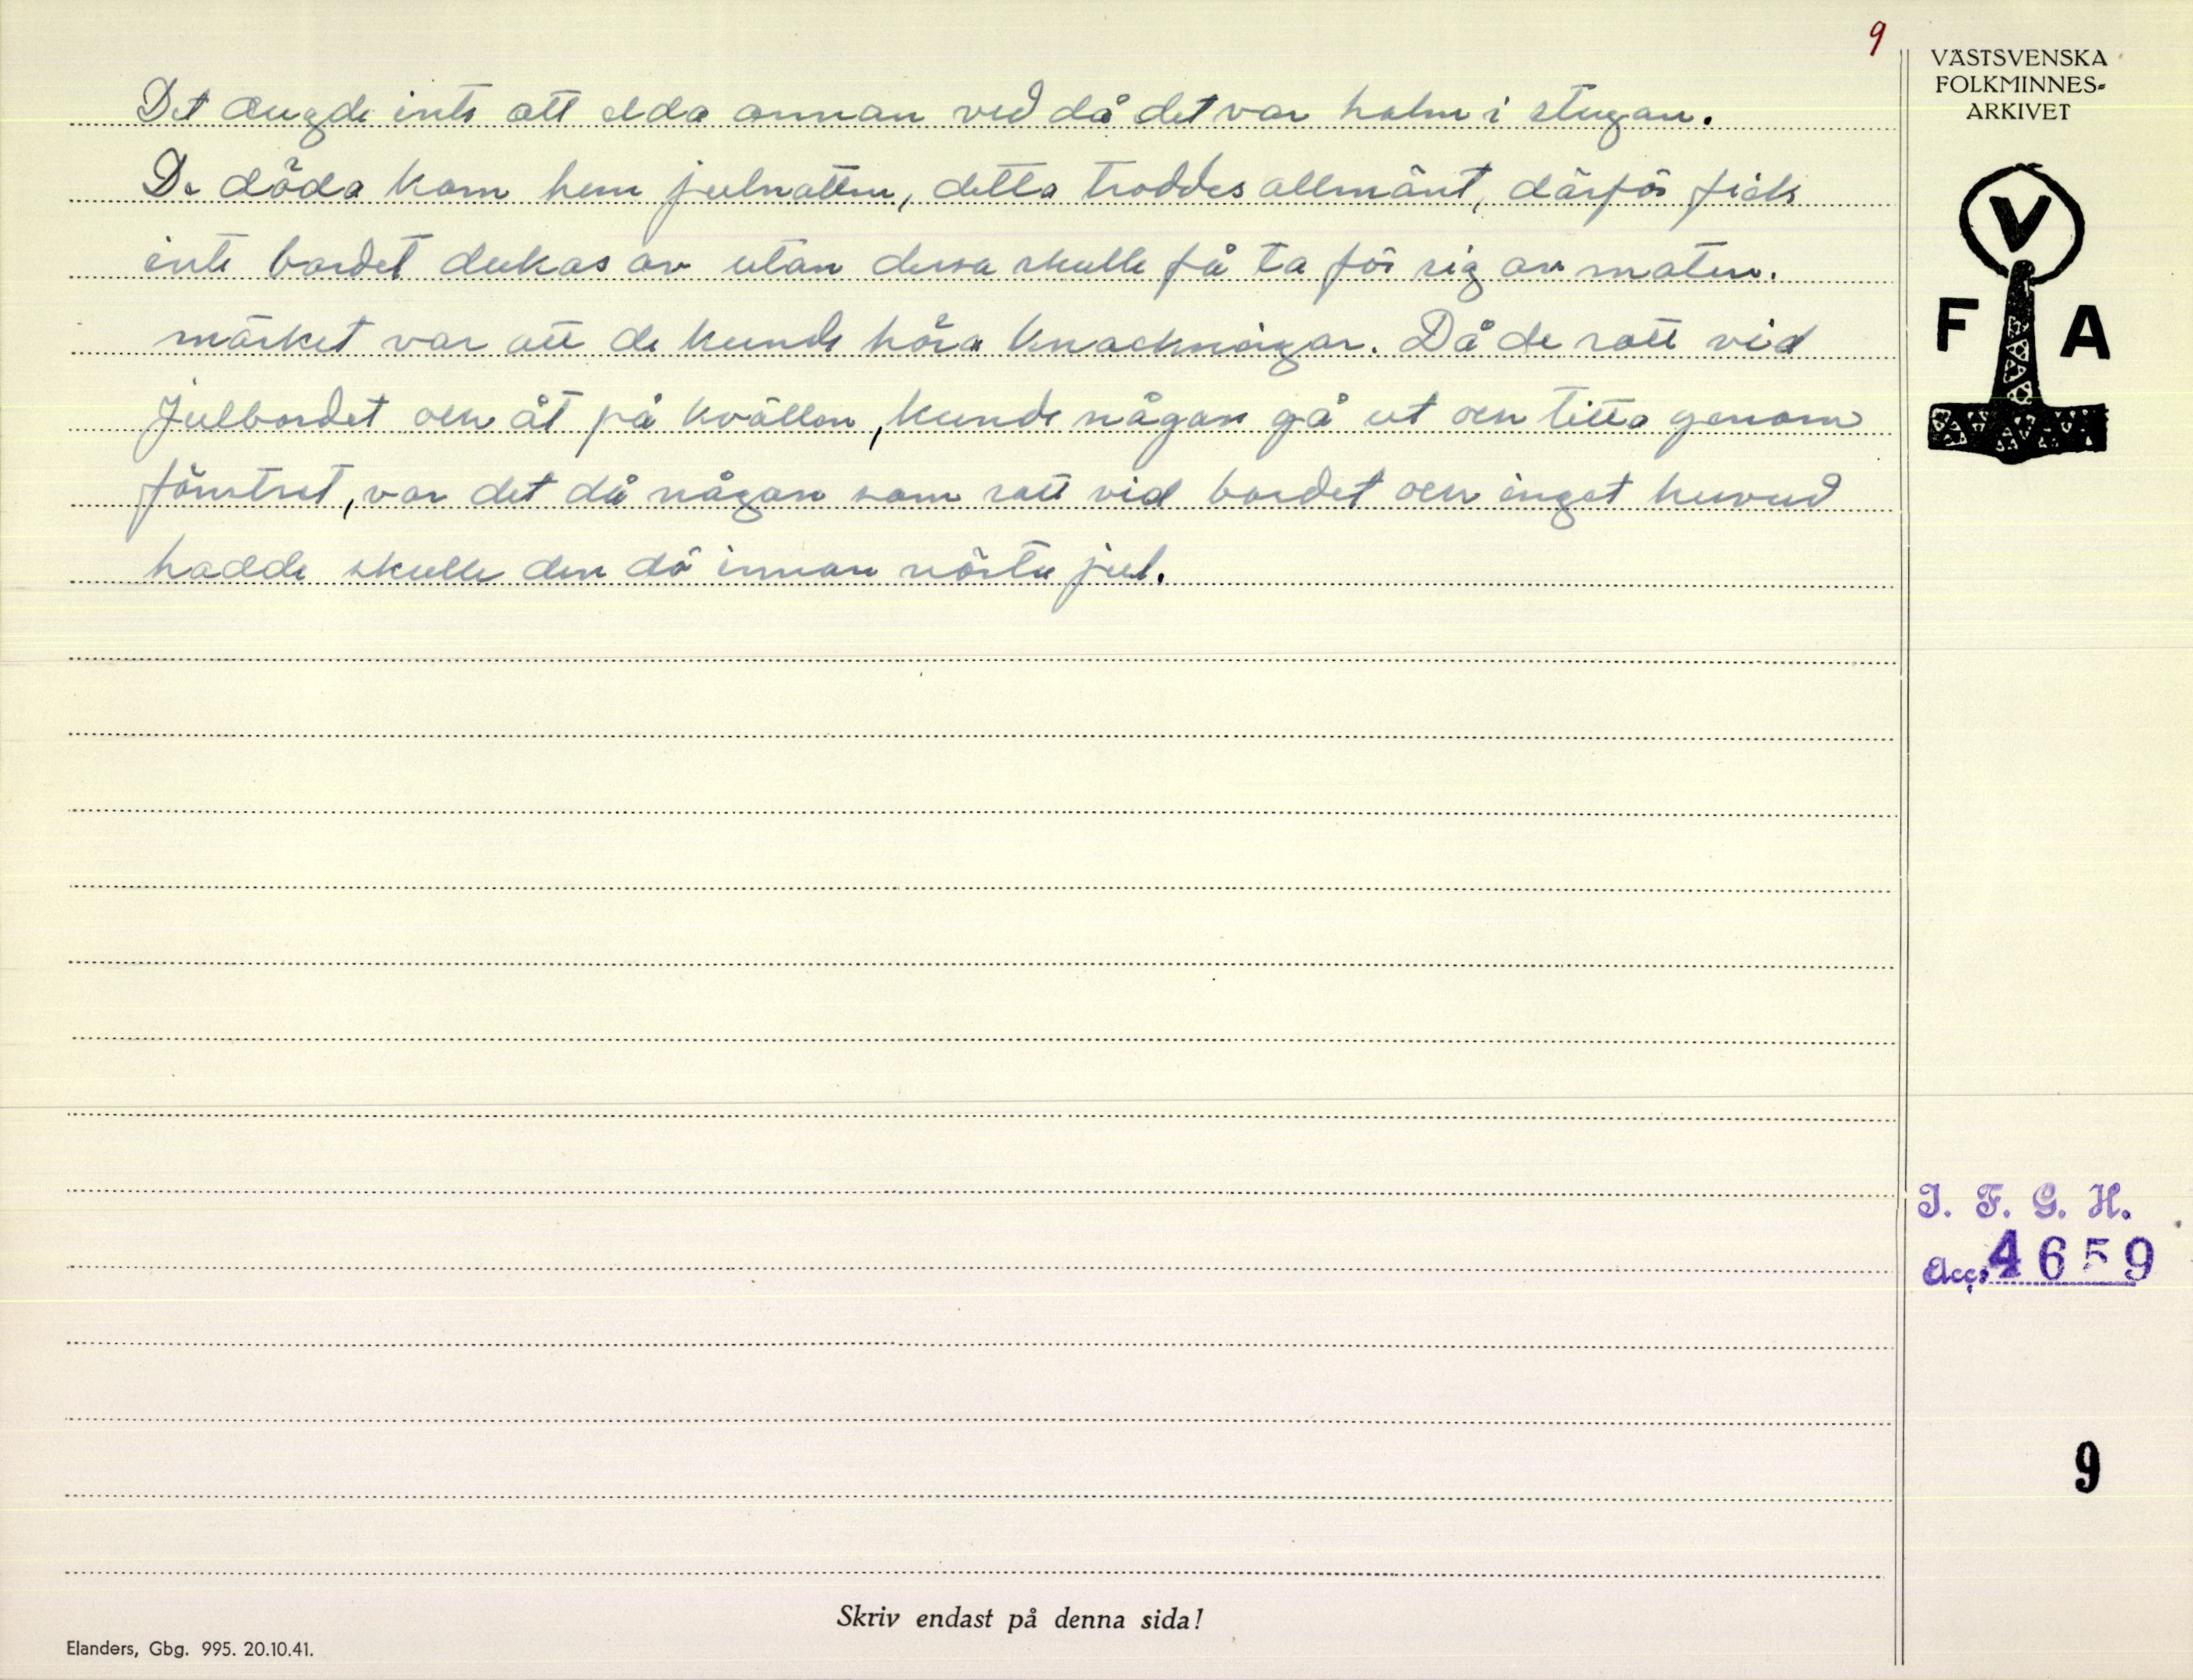 9
VÄSTSVENSKA
FOLKMINNES-
ARKIVET
V
F A
Det dugde inte att elda annan ved då det var halm i stugan.
De döda kom hem julnatten, detta troddes allmänt, därför fick
inte bordet dukas av utan dessa skulle få ta för sig av maten.
märket var att de kunde höra knackningar. Då de satt vid
Julbordet och åt på kvällen, kunde någon gå ut och titta genom
fönstret, var det då någon som satt vid bordet och inget huvud
hadde skulle den dö innan nästa jul.
I. F. G. H.
Acc. 4659
9
Skriv endast på denna sida!
Elanders, Gbg. 995. 20.10.41.